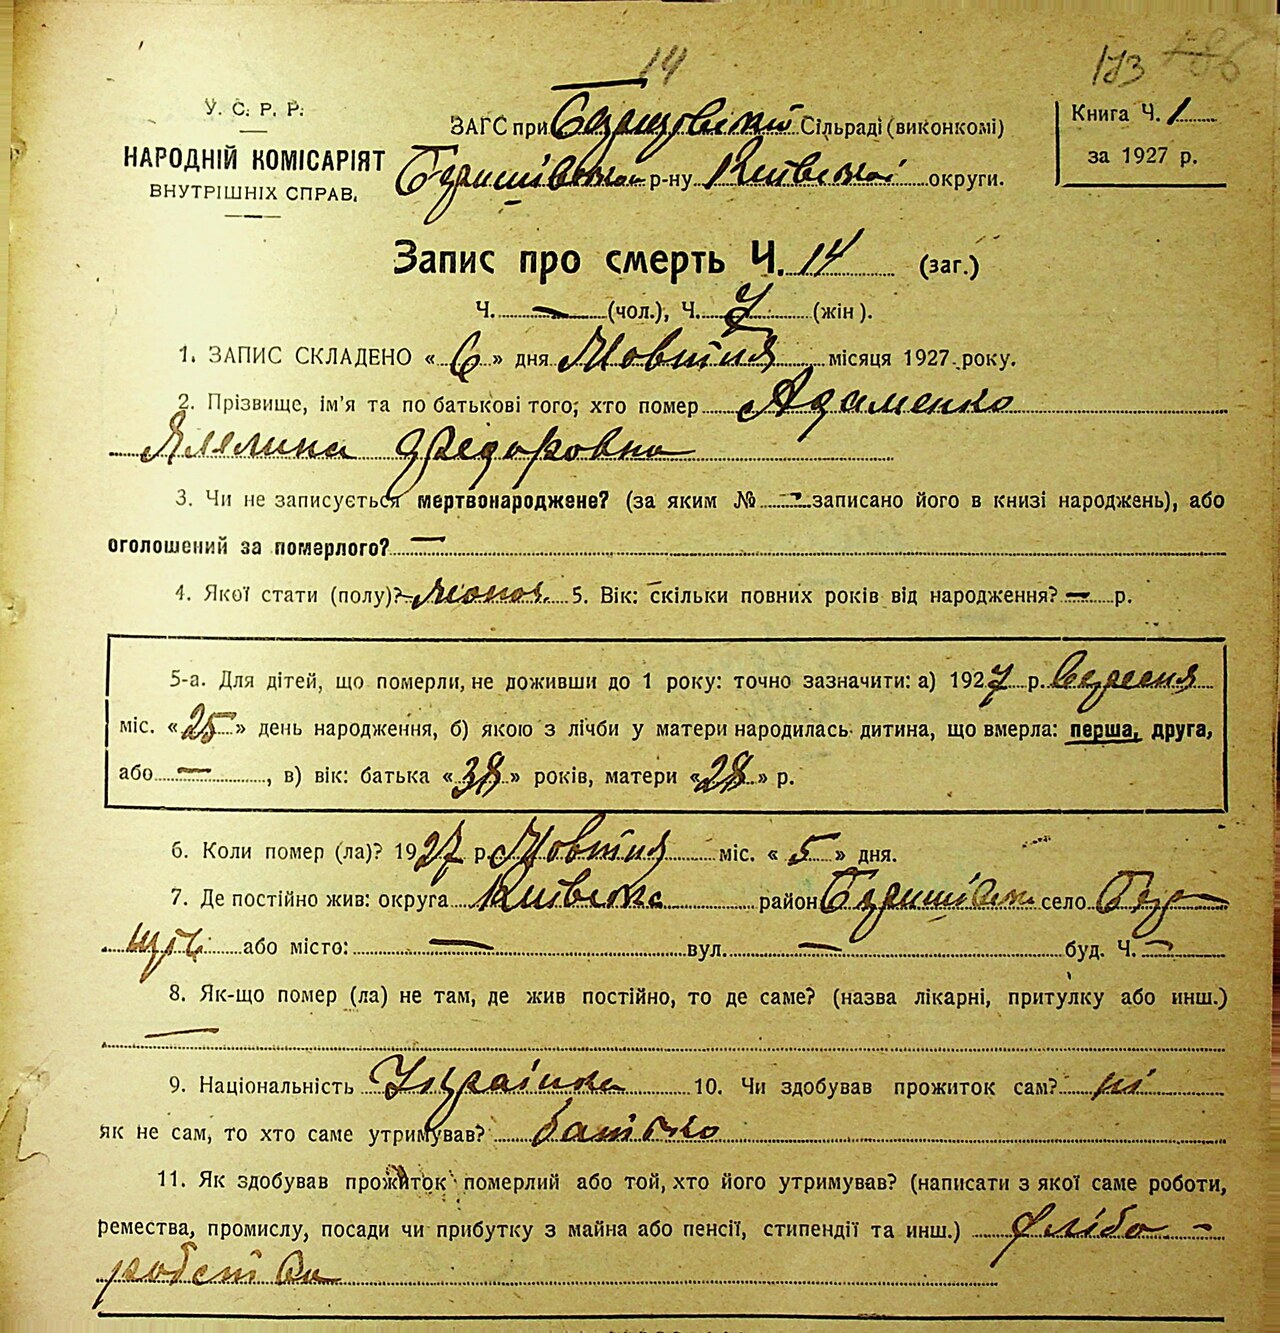 14
173 186
У. С. Р. Р.
НАРОДНІЙ КОМІСАРІЯТ
ВНУТРІШНІХ СПРАВ.
ЗАГС при Сільраді (виконкомі)
р-ну Київської округи.
Книга Ч. 1
за 1927 р.
Запис про смерть Ч. 14 (заг.)
Ч. — (чол.), Ч. 7 (жін).
1. ЗАПИС СКЛАДЕНО « 6 » дня Жовтня місяця 1927 року.
2. Прізвище, ім'я та по батькові того, хто помер Адаменко
Федоровна
3. Чи не записується мертвонароджене? (за яким № — записано його в книзі народжень), або
оголошений за померлого? —
4. Якої стати (полу)? жіноч. 5. Вік: скільки повних років від народження? — р.
5-а. Для дітей, що померли, не доживши до 1 року: точно зазначити: а) 1927 р. вересня
міс. « 25 » день народження, б) якою з лічби у матери народилась дитина, що вмерла: перша, друга,
або — , в) вік: батька « 38 » років, матери « 28 » р.
6. Коли помер (ла)? 1927 р. Жовтня міс. « 5 » дня.
7. Де постійно жив: округа Київська район село
або місто: — вул. — буд. Ч. —
8. Як-що помер (ла) не там, де жив постійно, то де саме? (назва лікарні, притулку або инш.)
—
9. Національність Українка 10. Чи здобував прожиток сам? ні
як не сам, то хто саме утримував? батько
11. Як здобував прожиток померлий або той, хто його утримував? (написати з якої саме роботи,
ремества, промислу, посади чи прибутку з майна або пенсії, стипендії та инш.) хлібо-
робство